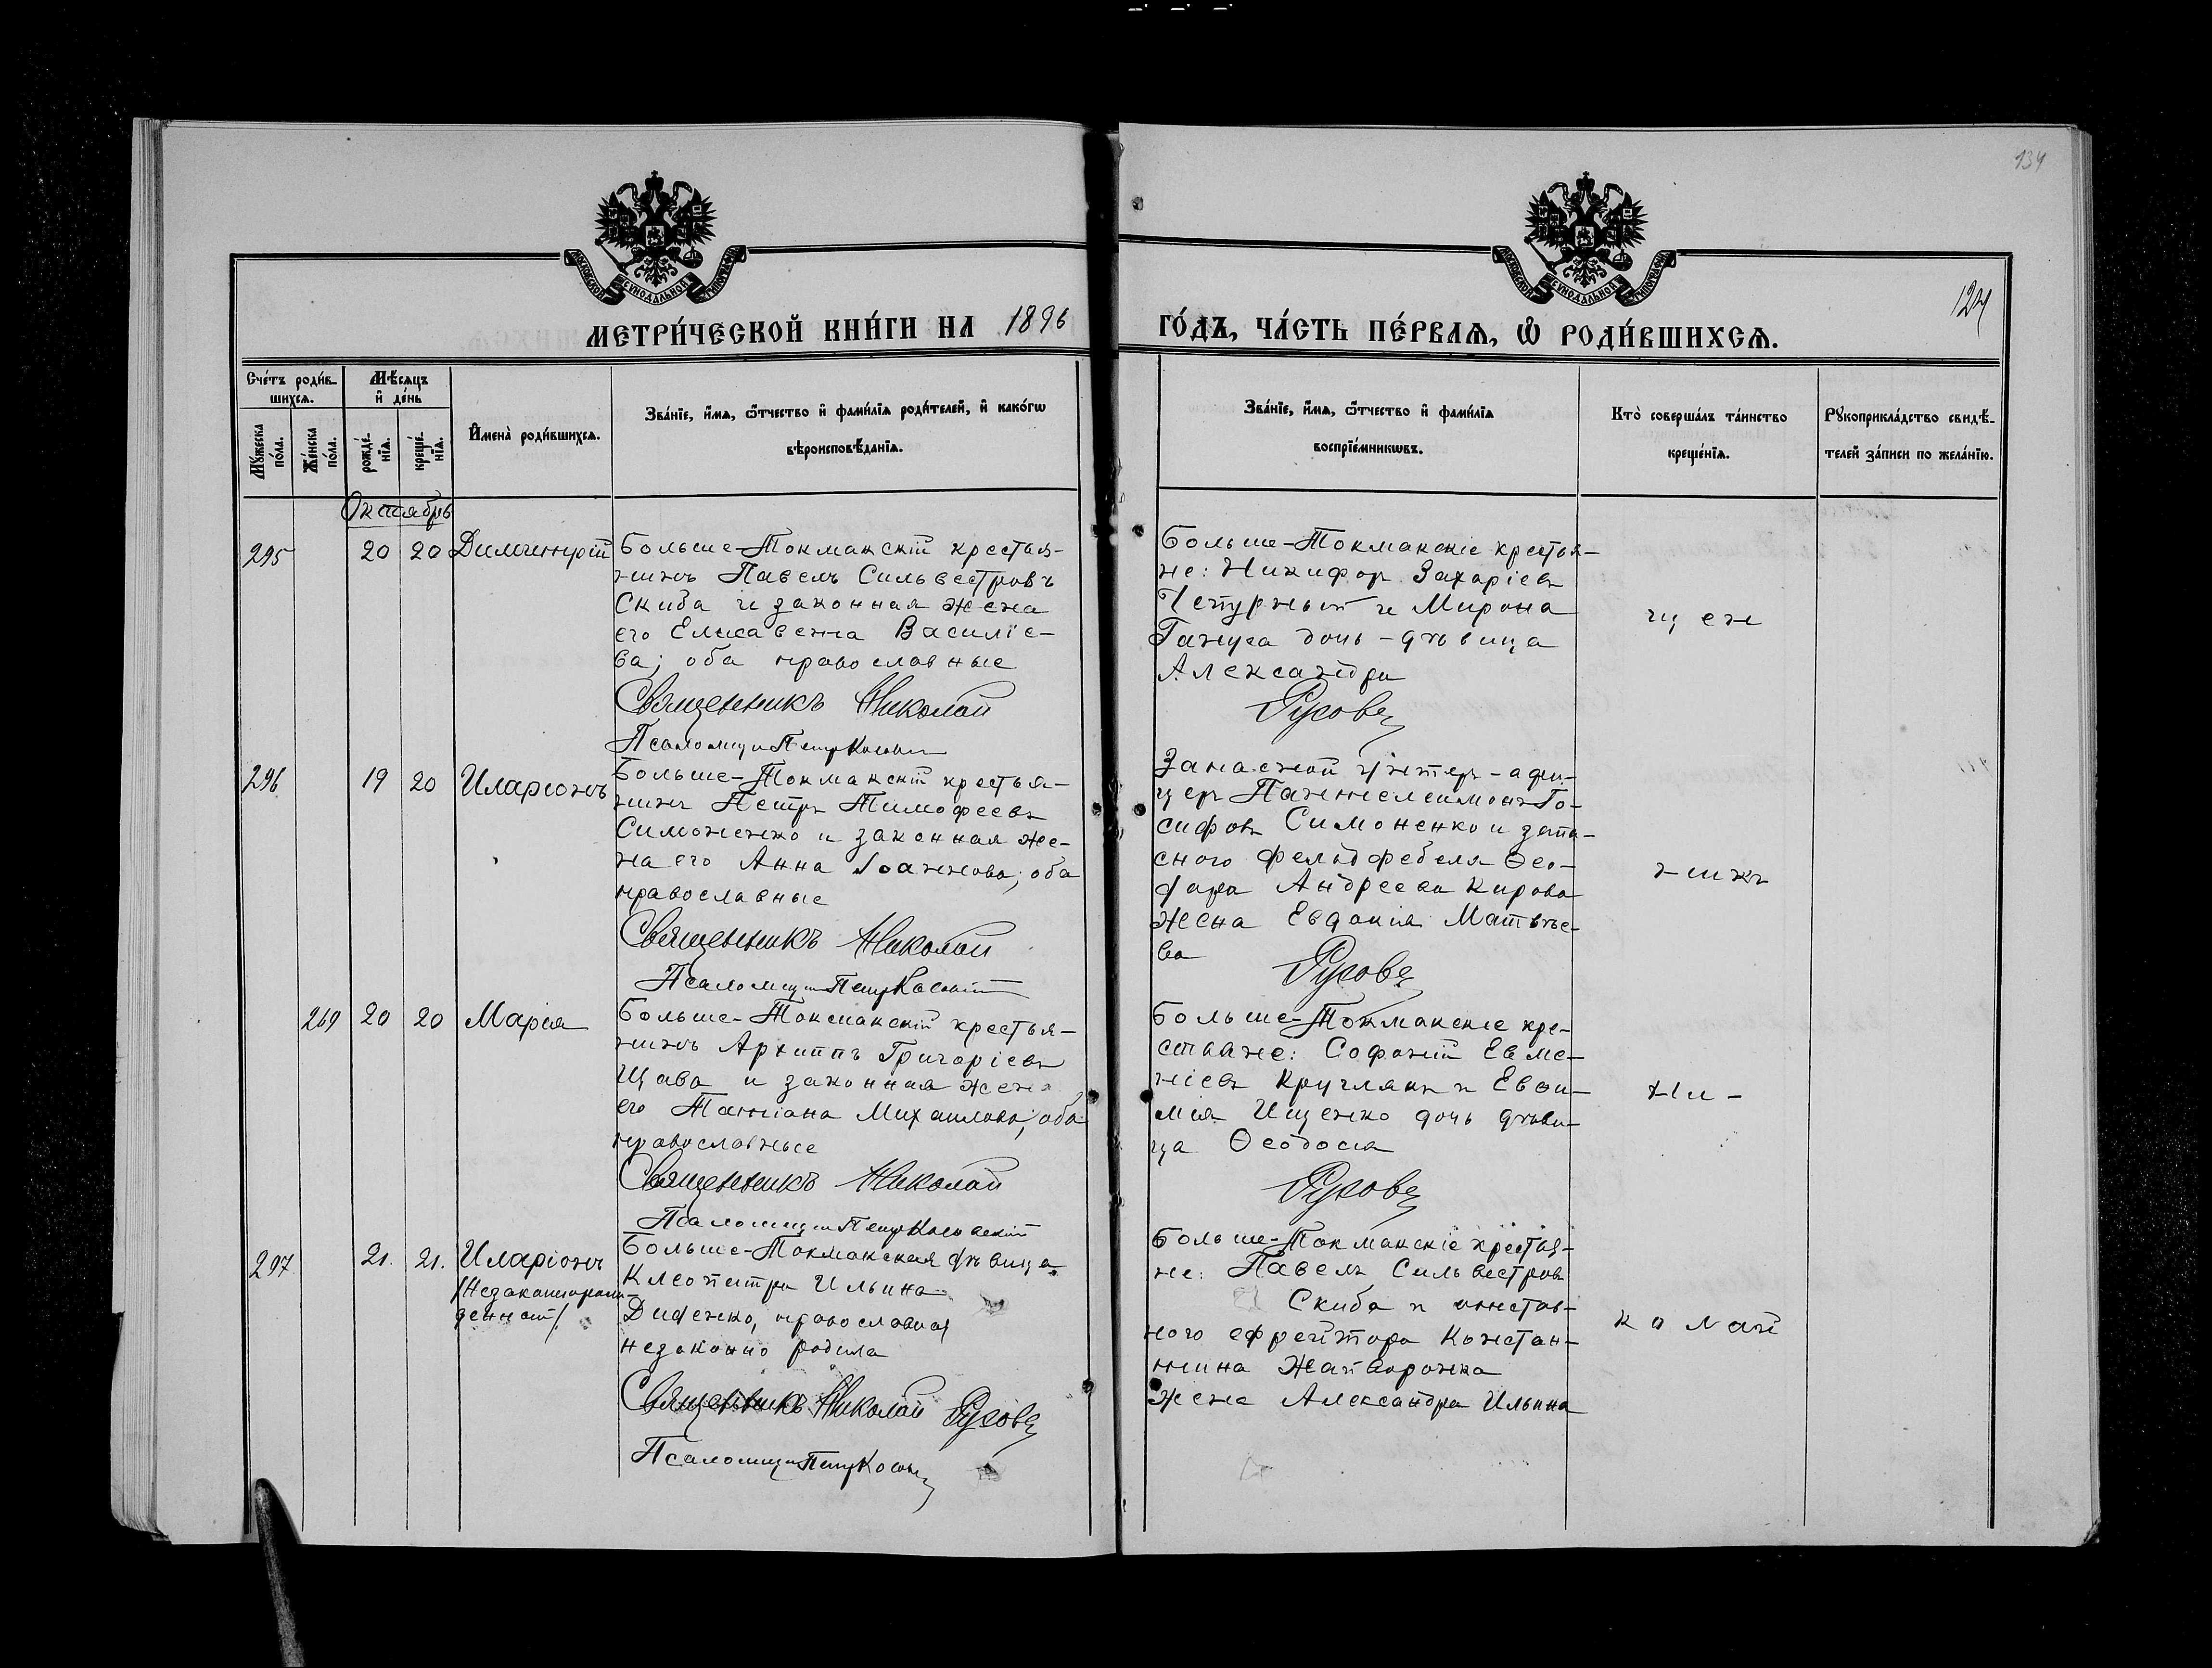 134
124
МЕТРИ́ЧЕСКОЙ КНИ́ГИ НА 1896
ГО́ДЪ, ЧА́СТЬ ПЕ́РВАѦ, Ѡ РОДИ́ВШИХСѦ.
МОСКОВСКОЙ СѴНОДАЛЬНОЙ ТИПОГРАФІИ
МОСКОВСКОЙ СѴНОДАЛЬНОЙ ТИПОГРАФІИ
Сче́тъ роди́в-
шихсѧ.
Мѣ́сѧцъ
и҆ де́нь
Мꙋ́жеска
по́ла.
Же́нска
по́ла.
рожде́-
нїѧ.
креще́-
нїѧ.
И҆мена̀ роди́вшихсѧ.
Зва́нїе, и҆́мѧ, ѻ҆́тчество и҆ фами́лїѧ роди́телей, и҆ како́гѡ
вѣроисповѣ́данїѧ.
Зва́нїе, и҆́мѧ, ѻ҆́тчество и҆ фами́лїѧ
воспрїе́мникѡвъ.
Кто̀ соверша́лъ та́инство
креще́нїѧ.
Рꙋкоприкла́дство свидѣ́-
телей за́писи по жела́нїю.
Октябрь
295
20
20
Димитрій
Больше-Токмакскій крестья-
нинъ Павелъ Сильвестровъ
Скиба и законная жена
его Елисавета Василіе-
ва; оба православные
Священникъ Николай
Псаломщ Петръ
Больше-Токмакскіе крестья-
не: Никифоръ Захаріевъ
Чепурный и Мирона
Гануса дочь-дѣвица
Александра
Русовъ
щен
296
19
20
Иларіонъ
Больше-Токмакскій крестья-
нинъ Петръ Тимофеевъ
Симоненко и законная же-
на его Анна Іоаннова; оба
православные
Священникъ Николай
Псаломщ Петръ
Запасной унтеръ-афи-
церъ Пантелеимонъ Іо-
сифовъ Симоненко и запа-
сного фельдфебеля Ѳео-
дора Андреева Кирова
жена Евдокія Матвѣе-
ва
Русовъ
никъ
269
20
20
Марія
Больше-Токмакскій крестья-
нинъ Архиппъ Григоріевъ
Щава и законная жена
его Татіана Михаилова; оба
православные
Священникъ Николай
Псаломщ Петръ
Больше-Токмакскіе кре-
стьяне: Софоній Евме-
ніевъ Круглякъ и Евѳи-
мія Ищенко дочь дѣви-
ца Ѳеодосія
Русовъ
Ни-
297
21.
21.
Иларіонъ
/Незаконнорож-
денный/.
Больше-Токмакская дѣвица
Клеопатра Ильина
Диденко, православная
незаконно родила
Священникъ Николай Русовъ
Псаломщ Петръ
Больше-Токмакскіе крестья-
не: Павелъ Сильвестровъ
Скиба и
ного ефрейтора Констан-
тина
жена Александра Ильина
колай